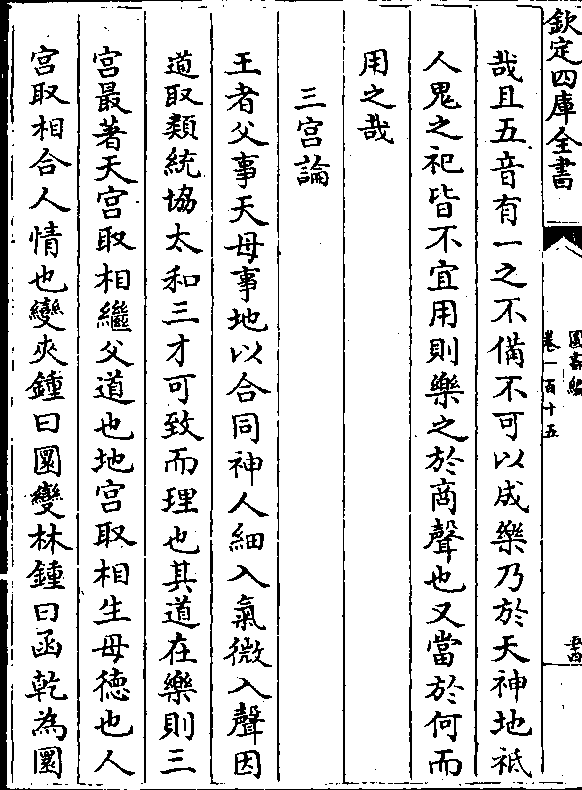 欽定四庫全書
圖書編
卷一百十五
哉且五音有一之不備不可以成樂乃於天神地祇
人鬼之祀皆不宜用則樂之於商聲也又當於何而
用之哉
三宮論
王者父事天母事地以合同神人細入氣微入聲因
道取類統協太和三才可致而理也其道在樂則三
宮最著天宮取相繼父道也地宮取相生母德也人
宮取相合人情也變夾鍾曰圜變林鍾曰函乾為圜